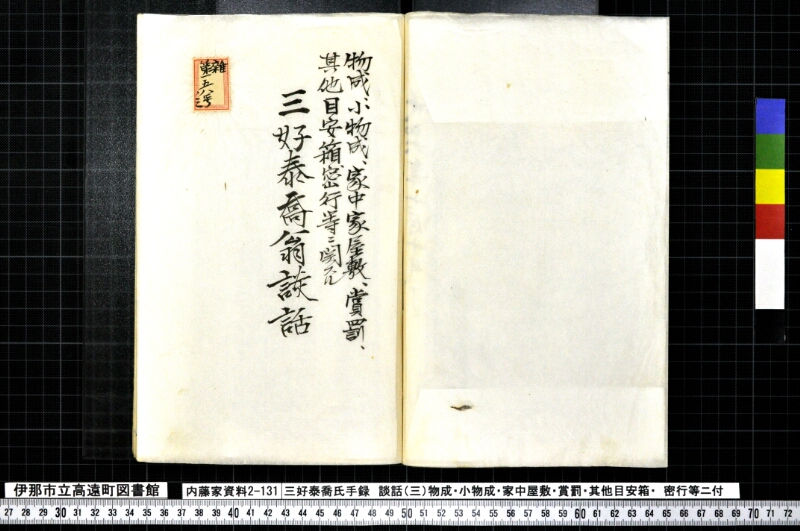 物成、小物成、家中家屋敷、賞罰、
其他目安箱密行等ニ関スル
三好泰喬翁談話
雑
第一五八号
伊那市立高遠町図書館
内藤家資料2-131 三好泰喬氏手録 談話(三)物成・小物成・家中屋敷・賞罰・其他目安箱・ 密行等ニ付
27 28 29 30 31 32 33 34 35 36 37 38 39 40 41 42 43 44 45 46 47 48 49 50 51 52 53 54 55 56 57 58 59 60 61 62 63 64 65 66 67 68 69 70 71 72